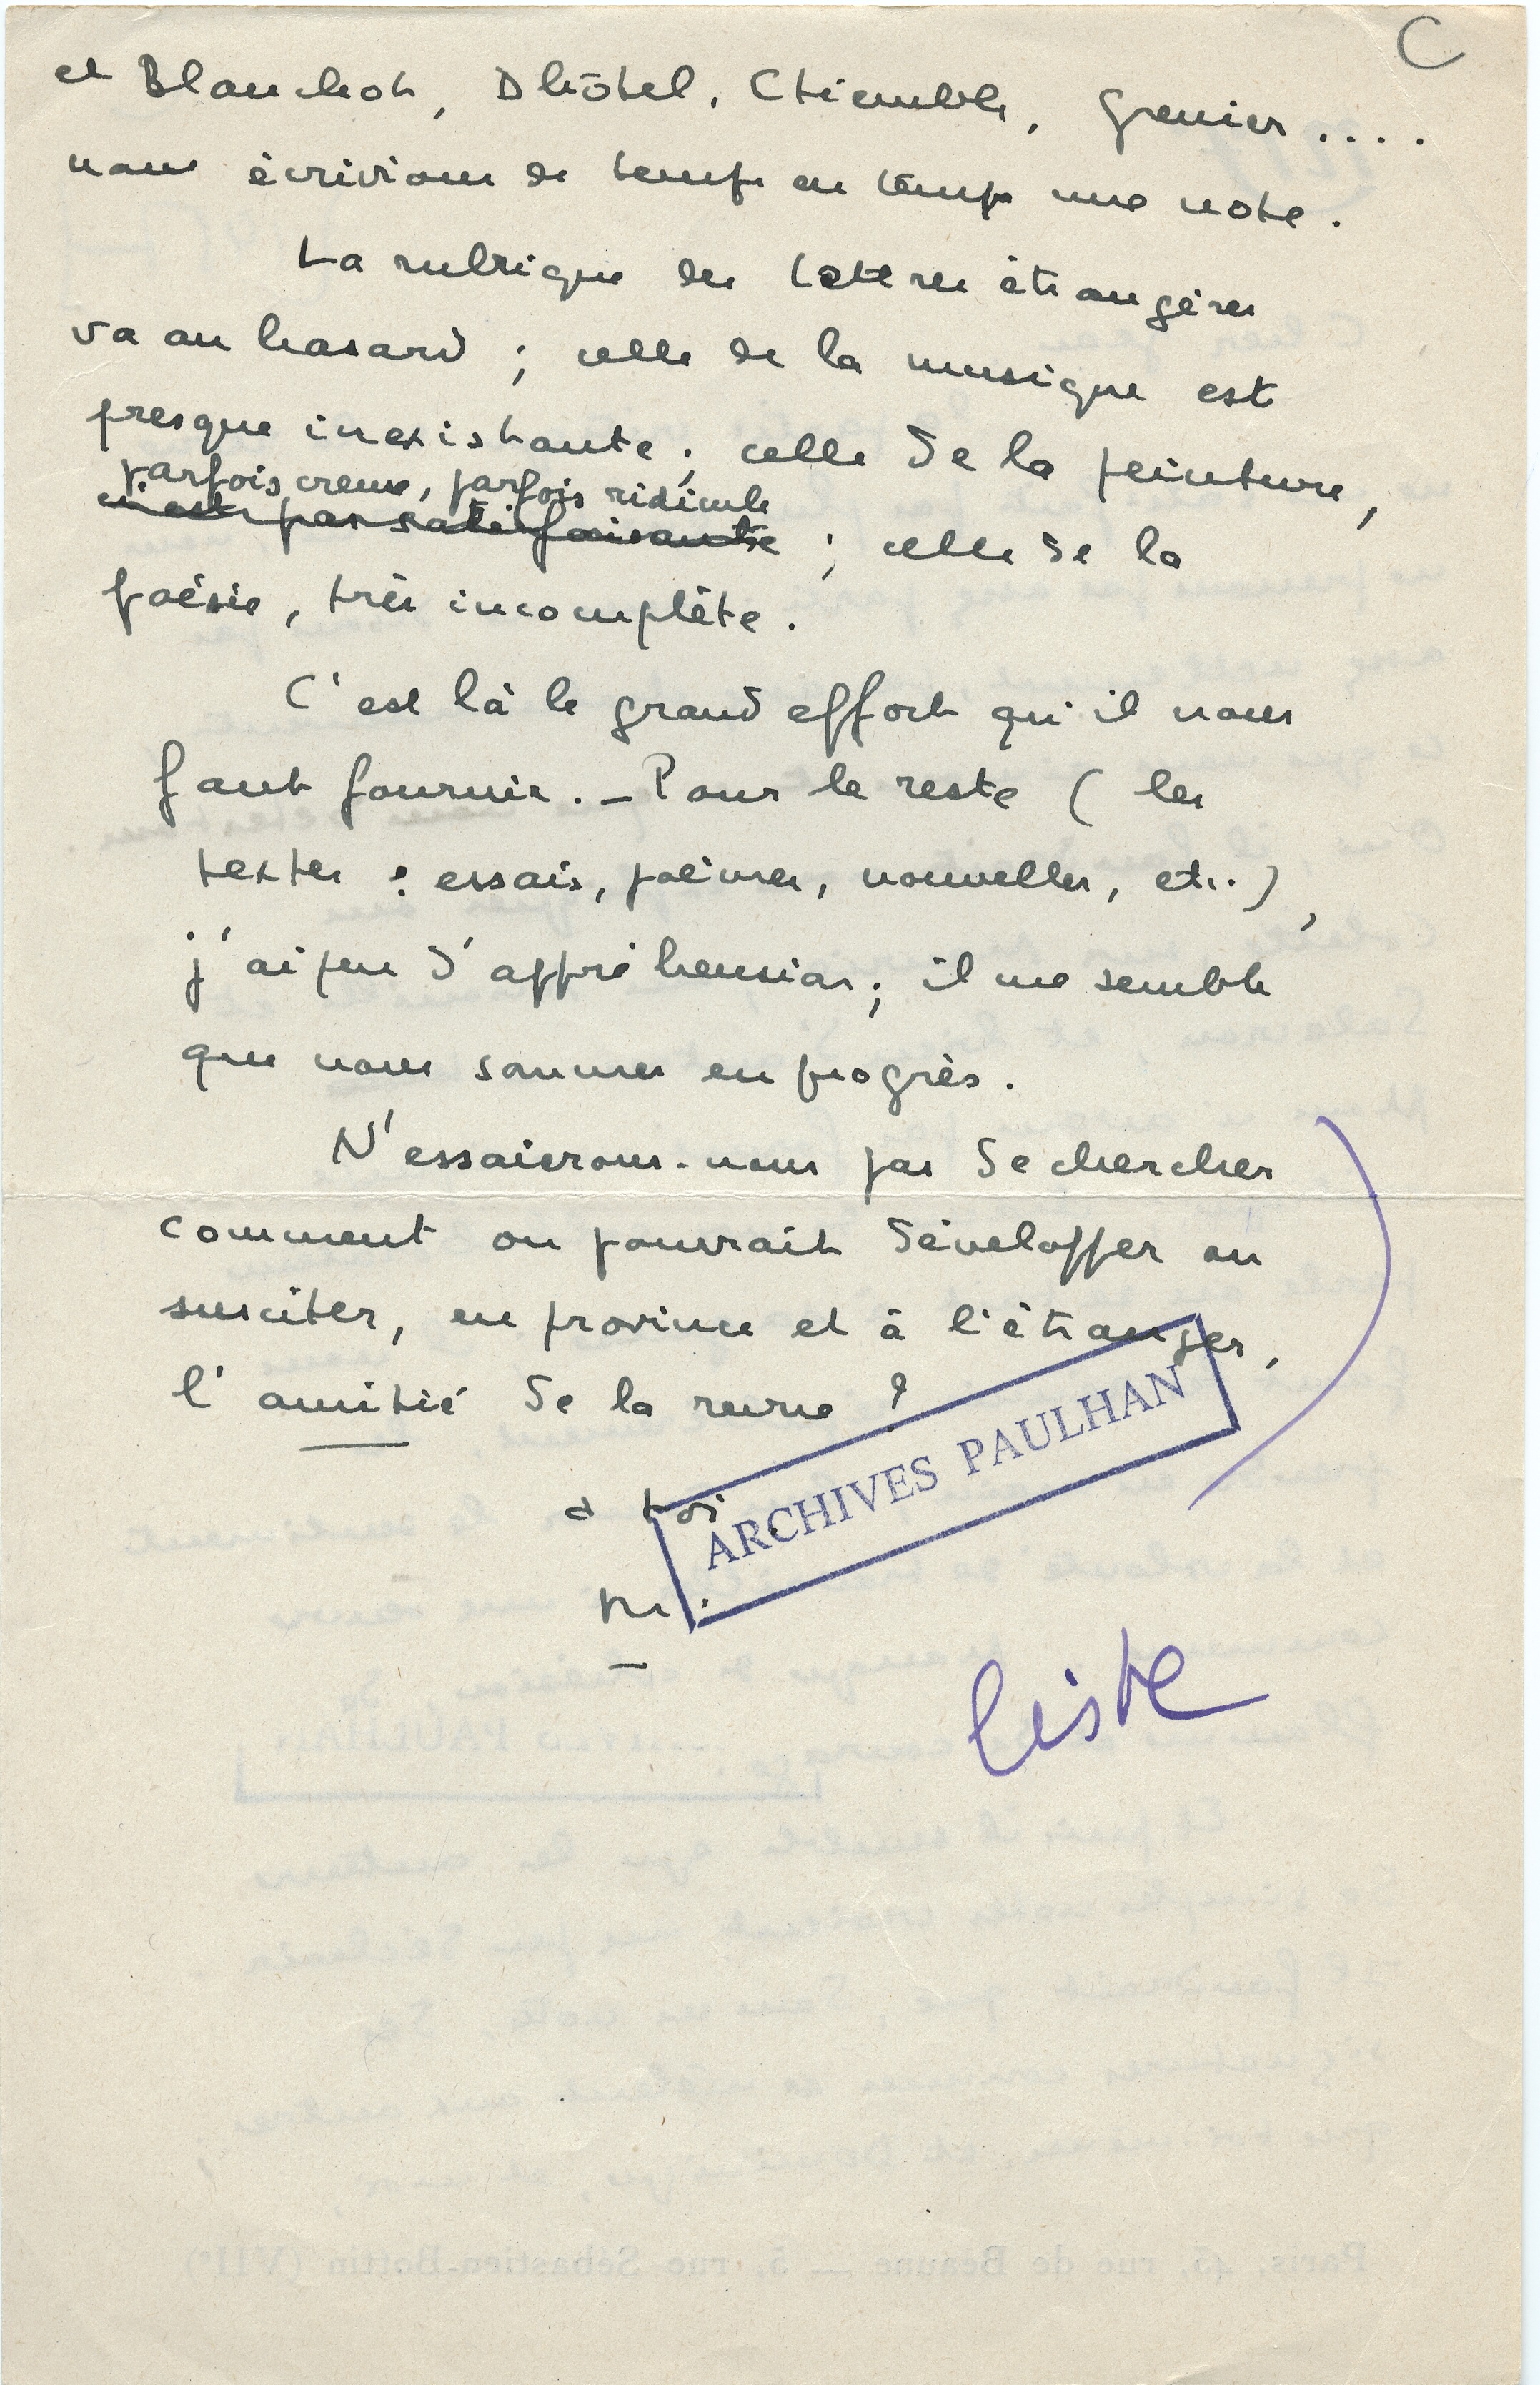 C
et Blanchot, Dhôtel, Etiemble, Grenier....
nous écrivions de temps en temps une note.
La rubrique des lettres étrangères
va au hasard ; celle de la musique est
presque inexistante ; celle de la peinture,
parfois creuse, parfois ridicule
n'est pas satisfaisante ; celle de la
poésie, très incomplète.
C'est là le grand effort qu'il nous
faut fournir. — Pour le reste ( les
textes : essais, poèmes, nouvelles, etc. ),
j'ai peu d'appréhension ; il me semble
que nous sommes en progrès.
N'essaierons-nous pas de chercher
comment on pourrait développer ou
susciter, en province et à l'étranger,
l'amitié de la revue ?
à toi.
ARCHIVES PAULHAN
M.
liste
Paris, 43, rue de Beaune — 5, rue Sébastien-Bottin (VIIe)